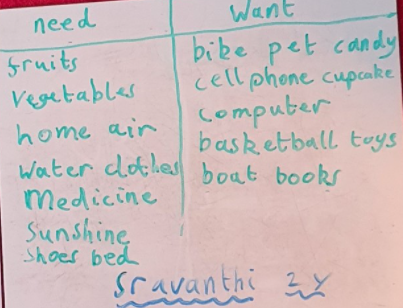 need
Want
fruits
vegetables
home air
water clothes
Medicine
Sunshine
Shoes bed
bike pet candy
cell phone cupcake
computer
basketball toys
boat books
Sravanthi 2 Y